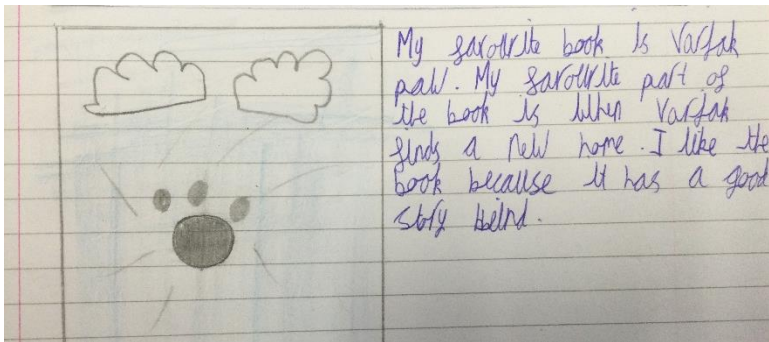 My favourite book is Varfak
paw. My favourite part of
the book is when Varfak
finds a new home. I like the
book because it has a good
story behind.